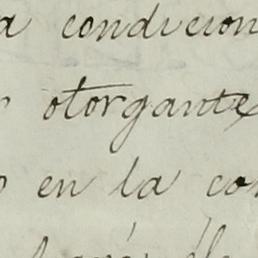 a condicion
otorgante
o en la co